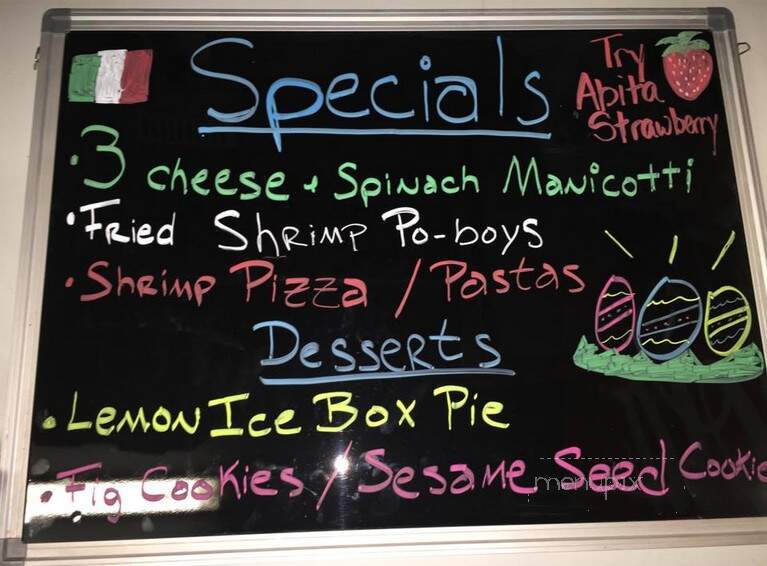 Specials
Try
Abita
Strawberry
• 3 cheese + Spinach Manicotti
• Fried Shrimp Po-boys
• Shrimp Pizza / Pastas
Desserts
• Lemon Ice Box Pie
• Fig Cookies / Sesame Seed Cookie
menupix